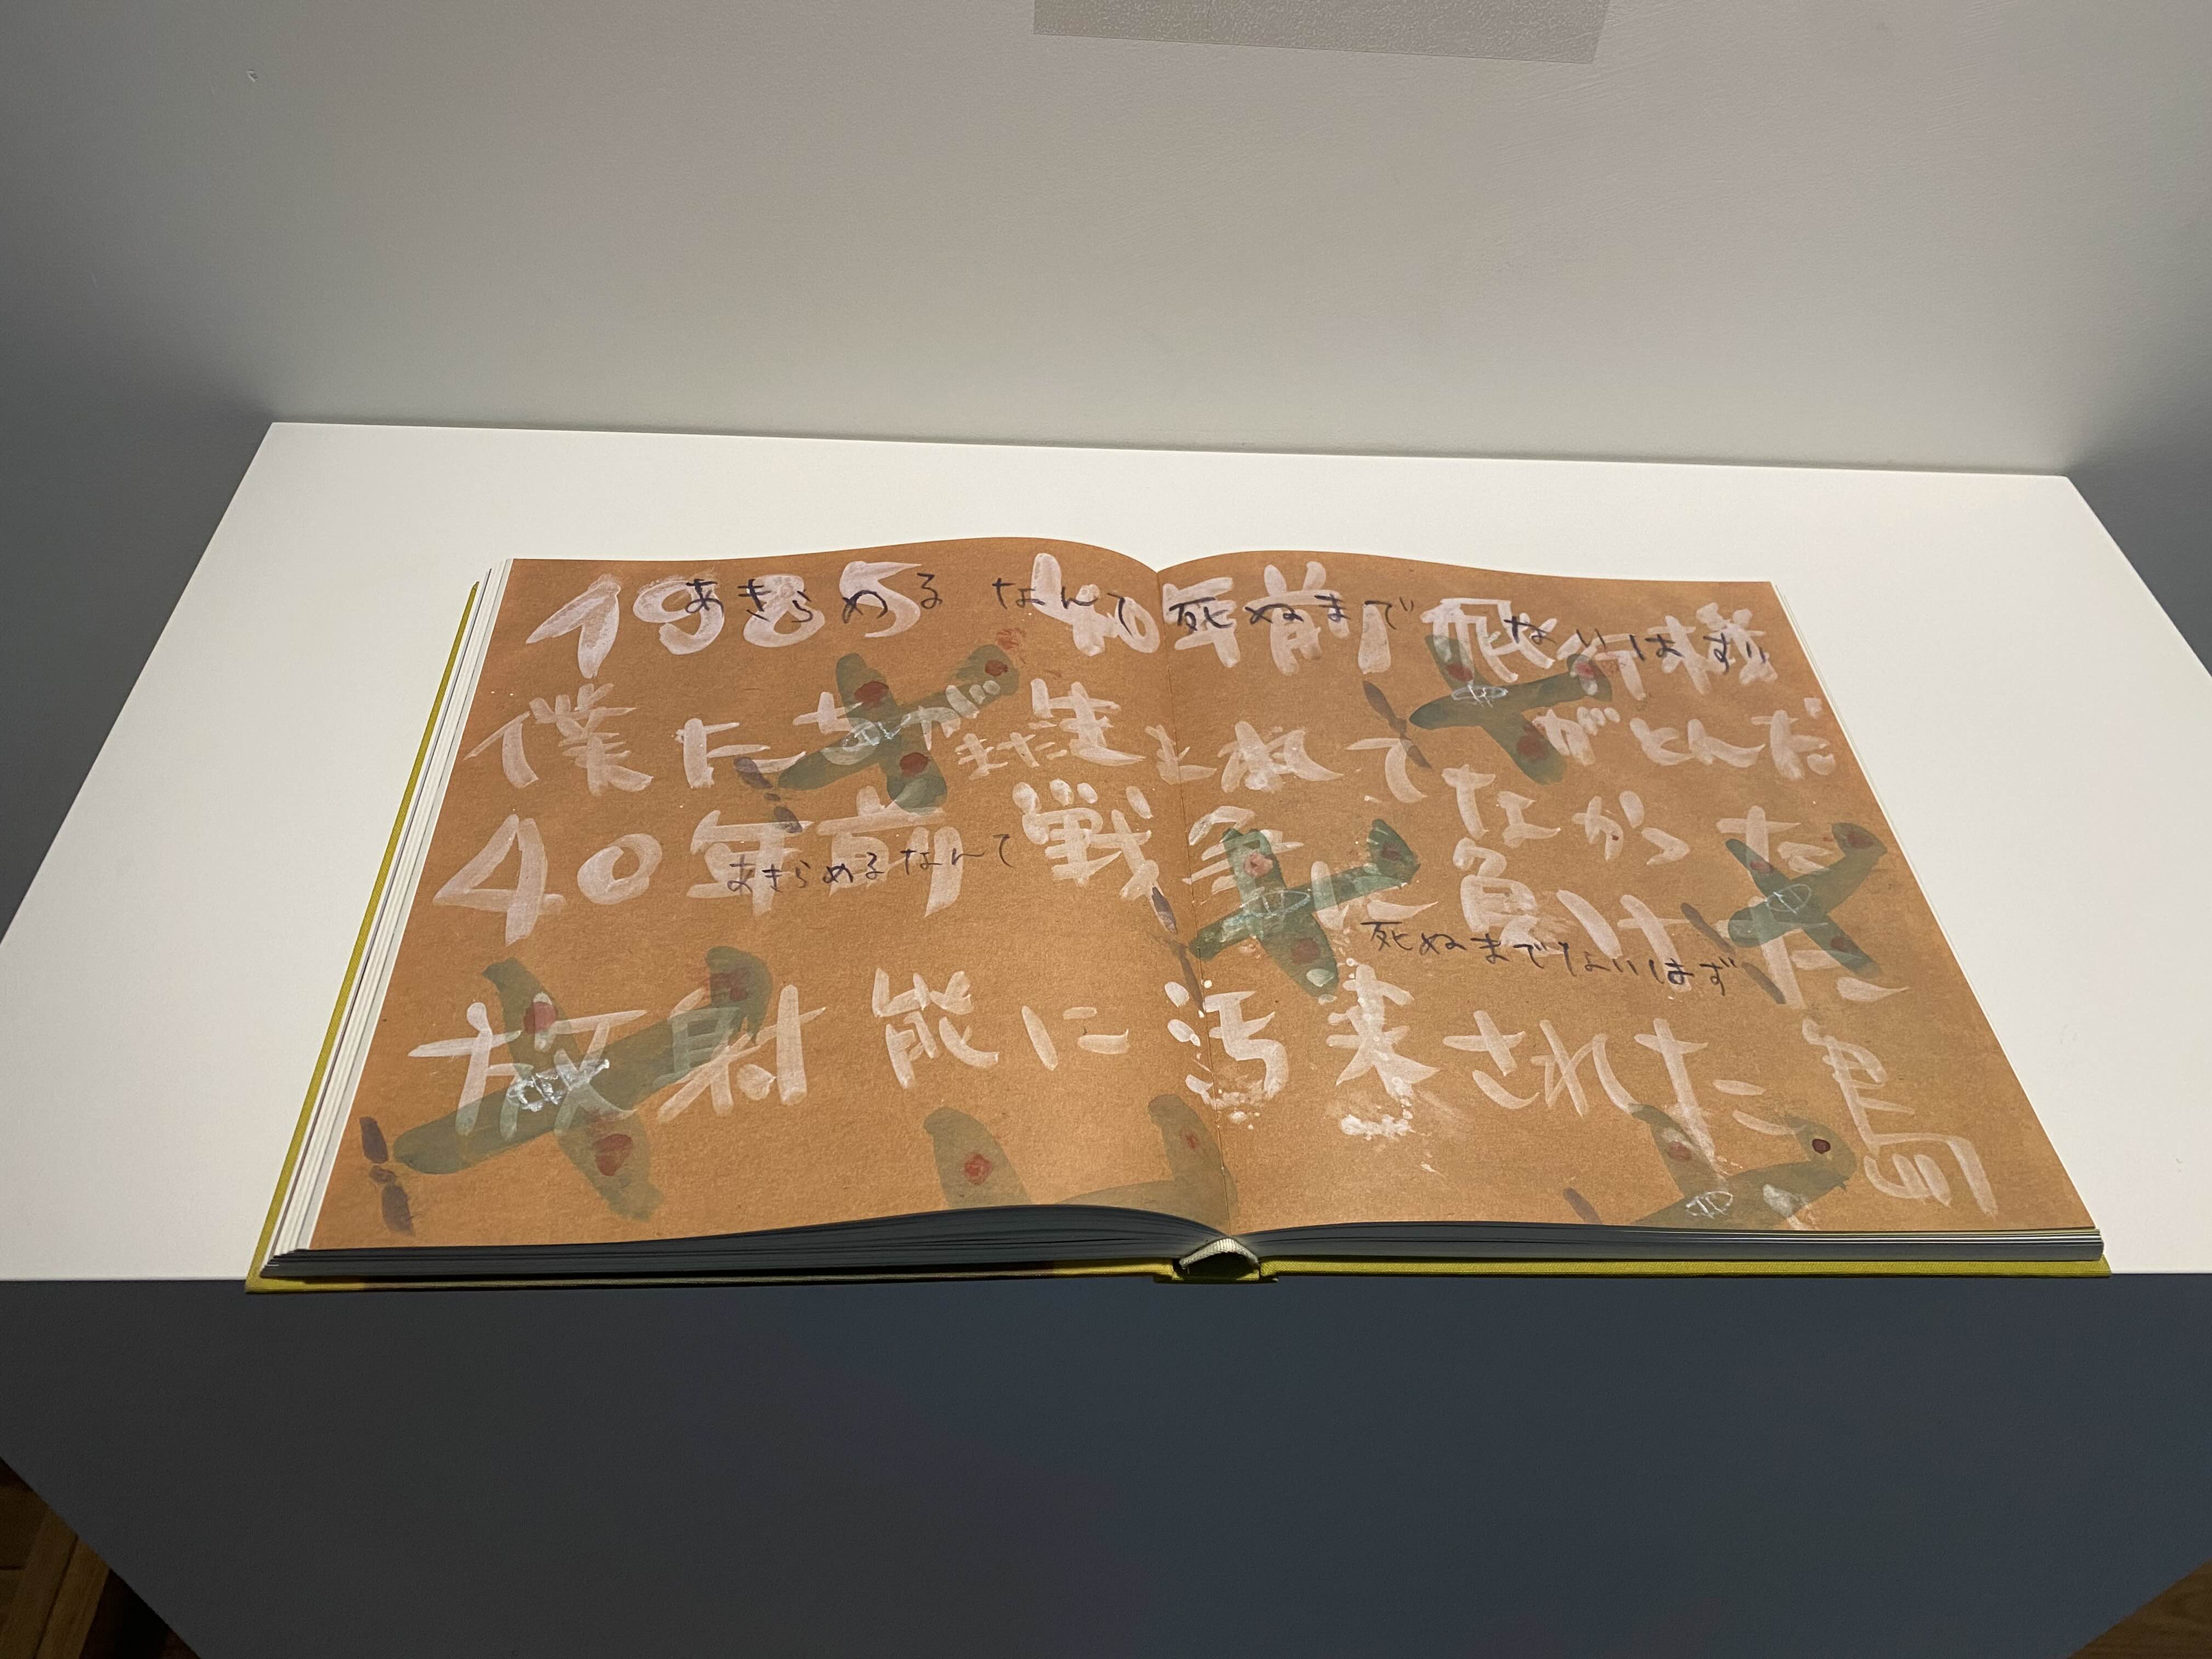 1985 40年前 飛行機
がとんだ
あきらめる なんて 死ぬまで ないはず
僕たちがまだ生まれて
なかった
40年前 戦争に負けた
あきらめるなんて
死ぬまでないはず
放射能に汚染された島